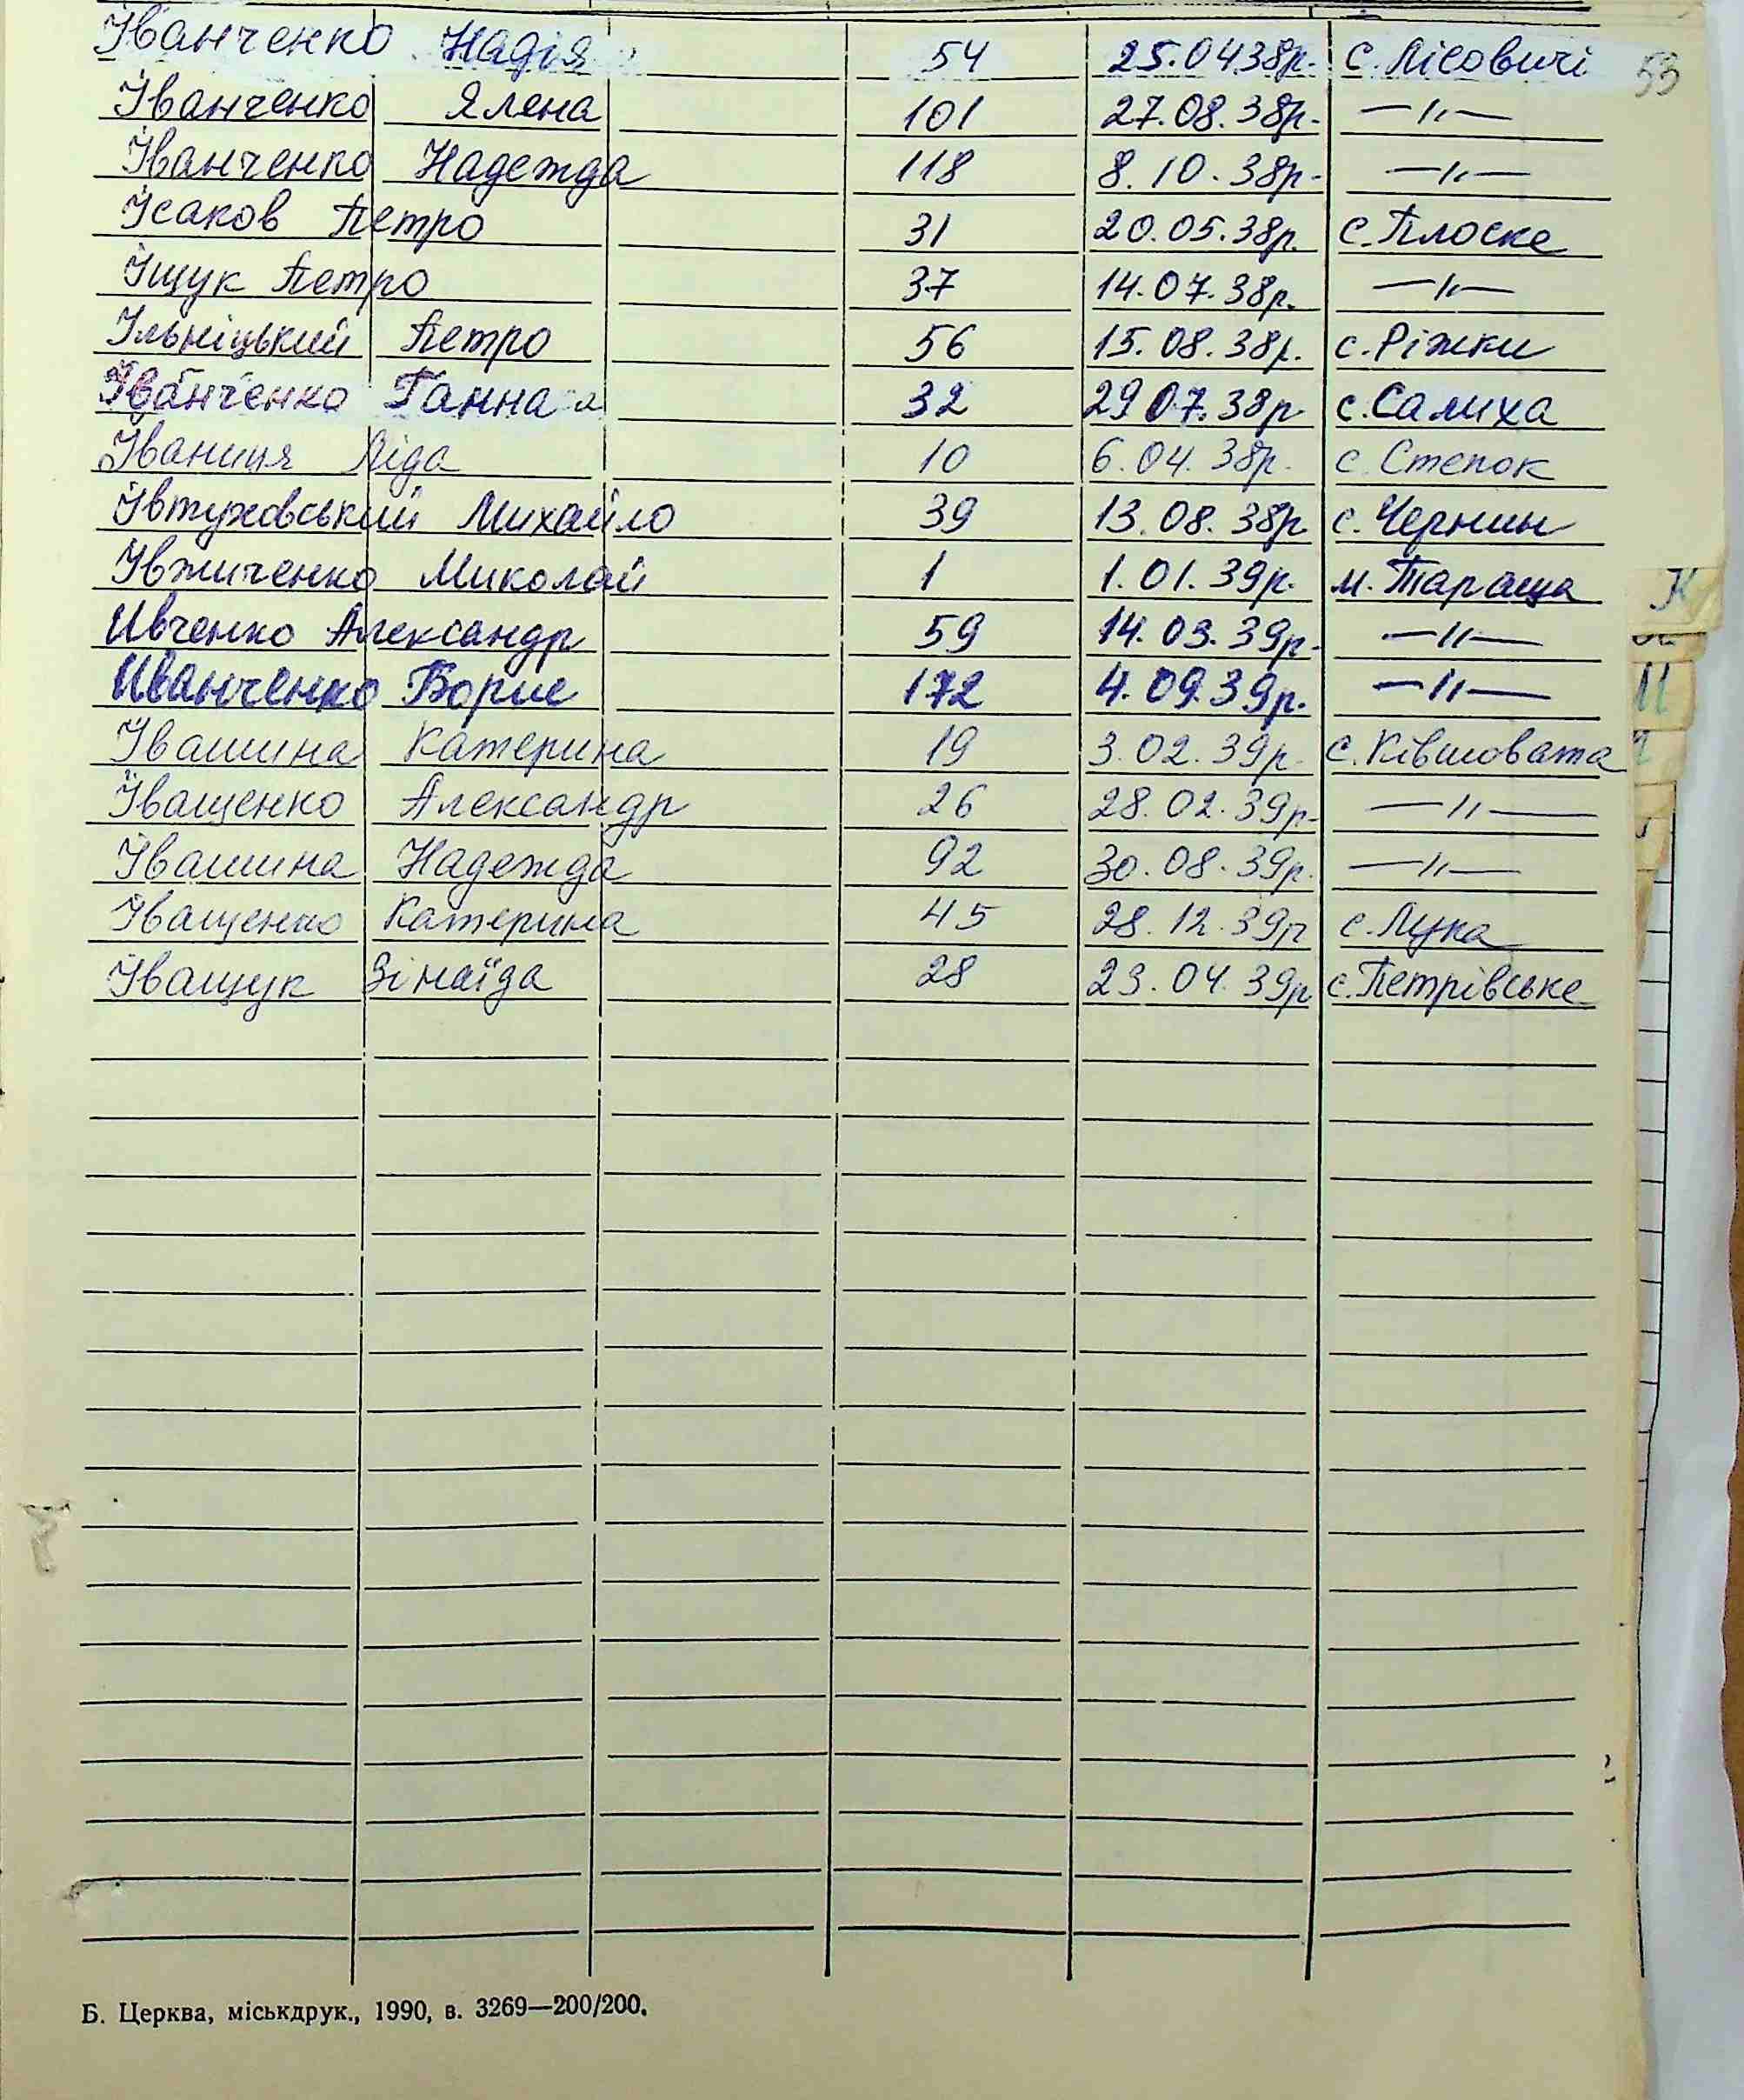 Іванченко Надія 54 25.04.38р. с. Лісовичі 53
Іванченко Ялена 101 27.08.38р. —"—
Іванченко Надежда 118 8.10.38р. —"—
Ісаков Петро 31 20.05.38р. с. Плоске
Іщук Петро 37 14.07.38р. —"—
Ільніцький Петро 56 15.08.38р. с. Ріжки
Іванченко Ганна 32 29.07.38р. с. Салиха
Іваниця Ліда 10 6.04.38р. с. Степок
Івтуховський Михайло 39 13.08.38р. с. Чернин
Івжиченко Миколай 1 1.01.39р. м. Тараща
К
Ивченко Александр 59 14.03.39р. —"—
Иванченко Борис 172 4.09.39р. —"—
Івашина Катерина 19 3.02.39р. с. Ківшовата
Іващенко Александр 26 28.02.39р. —"—
Івашина Надежда 92 30.08.39р. —"—
Іващенко Катерина 45 28.12.39р с. Лука
Іващук Зінаїда 28 23.04.39р с. Петрівське
Б. Церква, міськдрук., 1990, в. 3269—200/200.